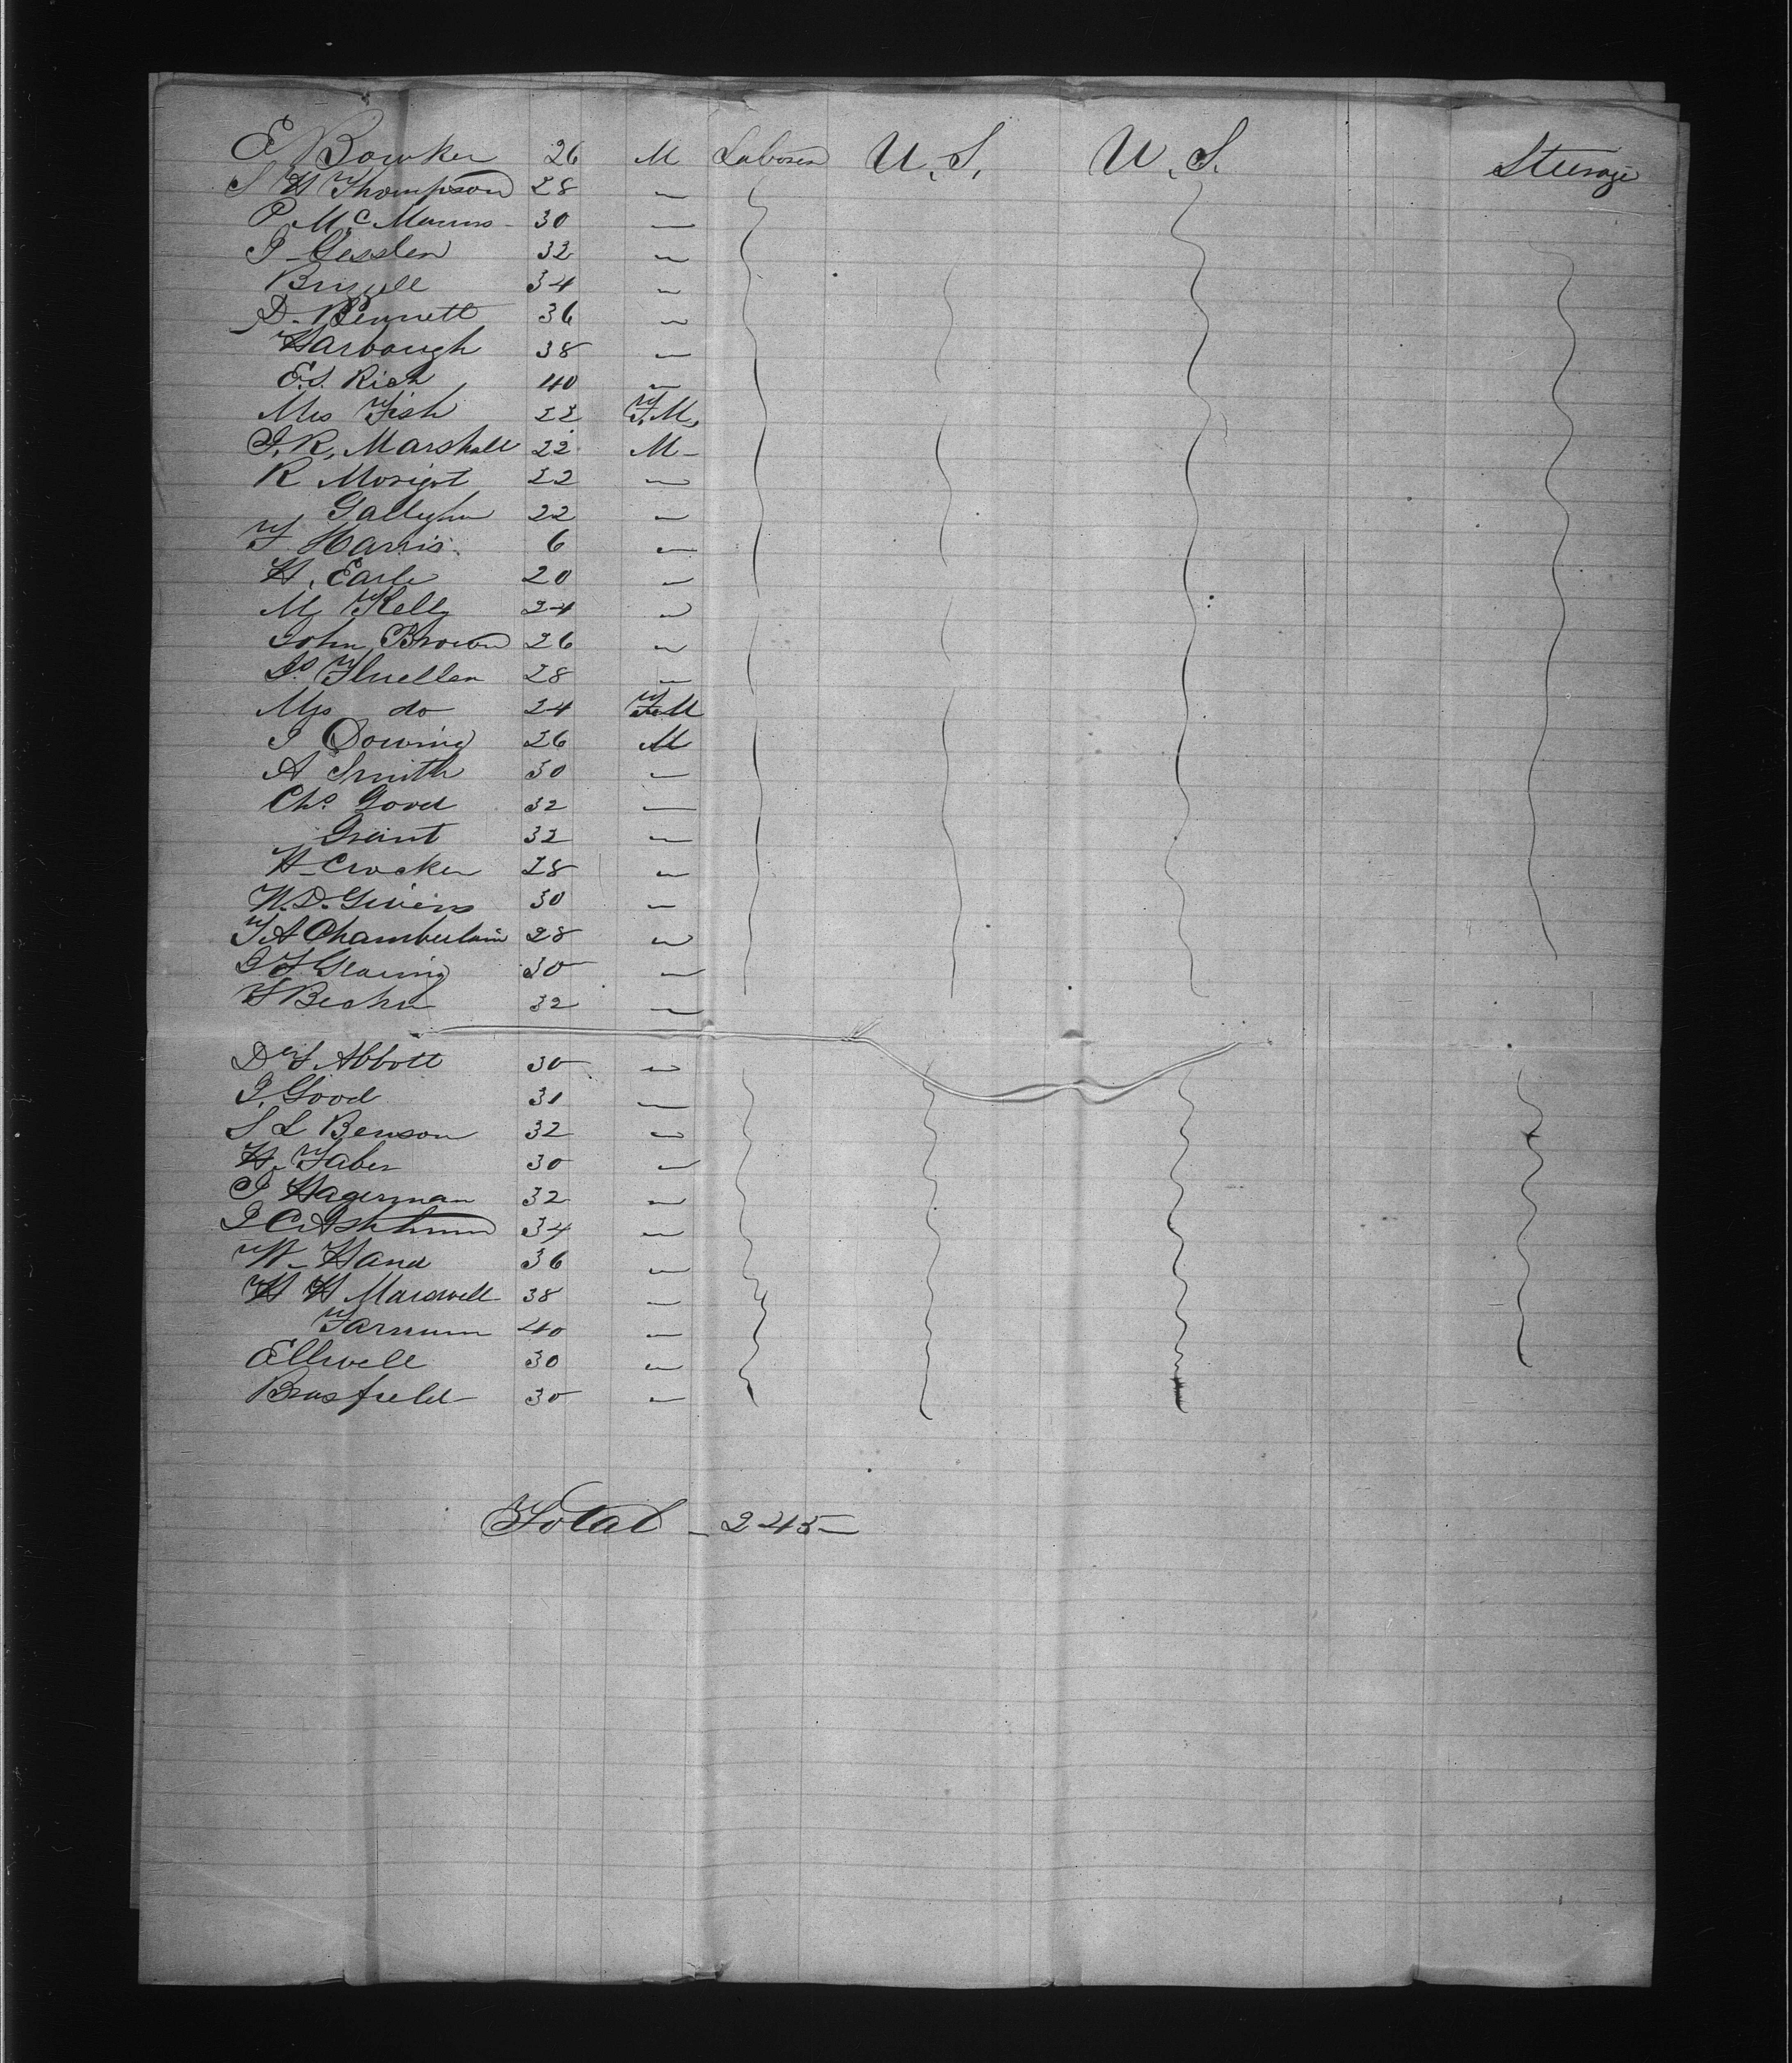 E Bowker 26 M Laborer U.S. U.S. Steerage
S H Thompson 28 "
P McManus 30 "
J Gesslen 32 "
34 "
D. Bennett 36 "
Harbough 38 "
E.S. Rich 40 "
Mrs Fish 22 F.M.
J.R. Marshall 22 M
R 22 "
22 "
F Harris 6 "
H. Earle 20 "
M Kelly 24 "
John Brown 26 "
Js Fluellen 28 "
Mrs do 24 F.M
J 26 M
A Smith 30 "
Chs Good 32 "
Grant 32 "
H Crocker 28 "
W.D. Givens 30 "
F.A Chamberlain 28 "
J F Gearing 30 "
32 "
Dr S Abbott 30 "
J. Good 31 "
S L Benson 32 "
H. Faber 30 "
J Hagerman 32 "
J C 34 "
W Hand 36 "
H H 38 "
Farnum 40 "
Ellwell 30 "
Brasfield 30 "
Total 245